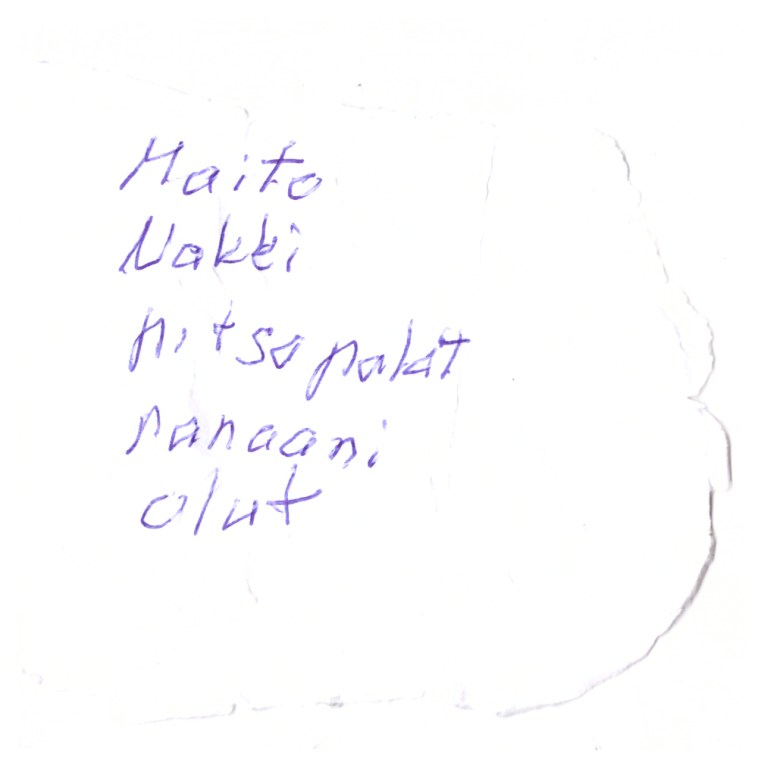 Maito
Nakki
pitsa palat
panaani
olut